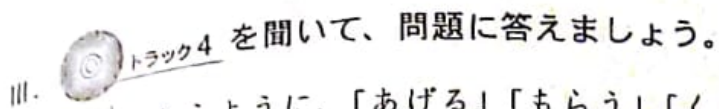 III. トラック4 を聞いて、問題に答えましょう。
ように、「あげる」「もらう」「く